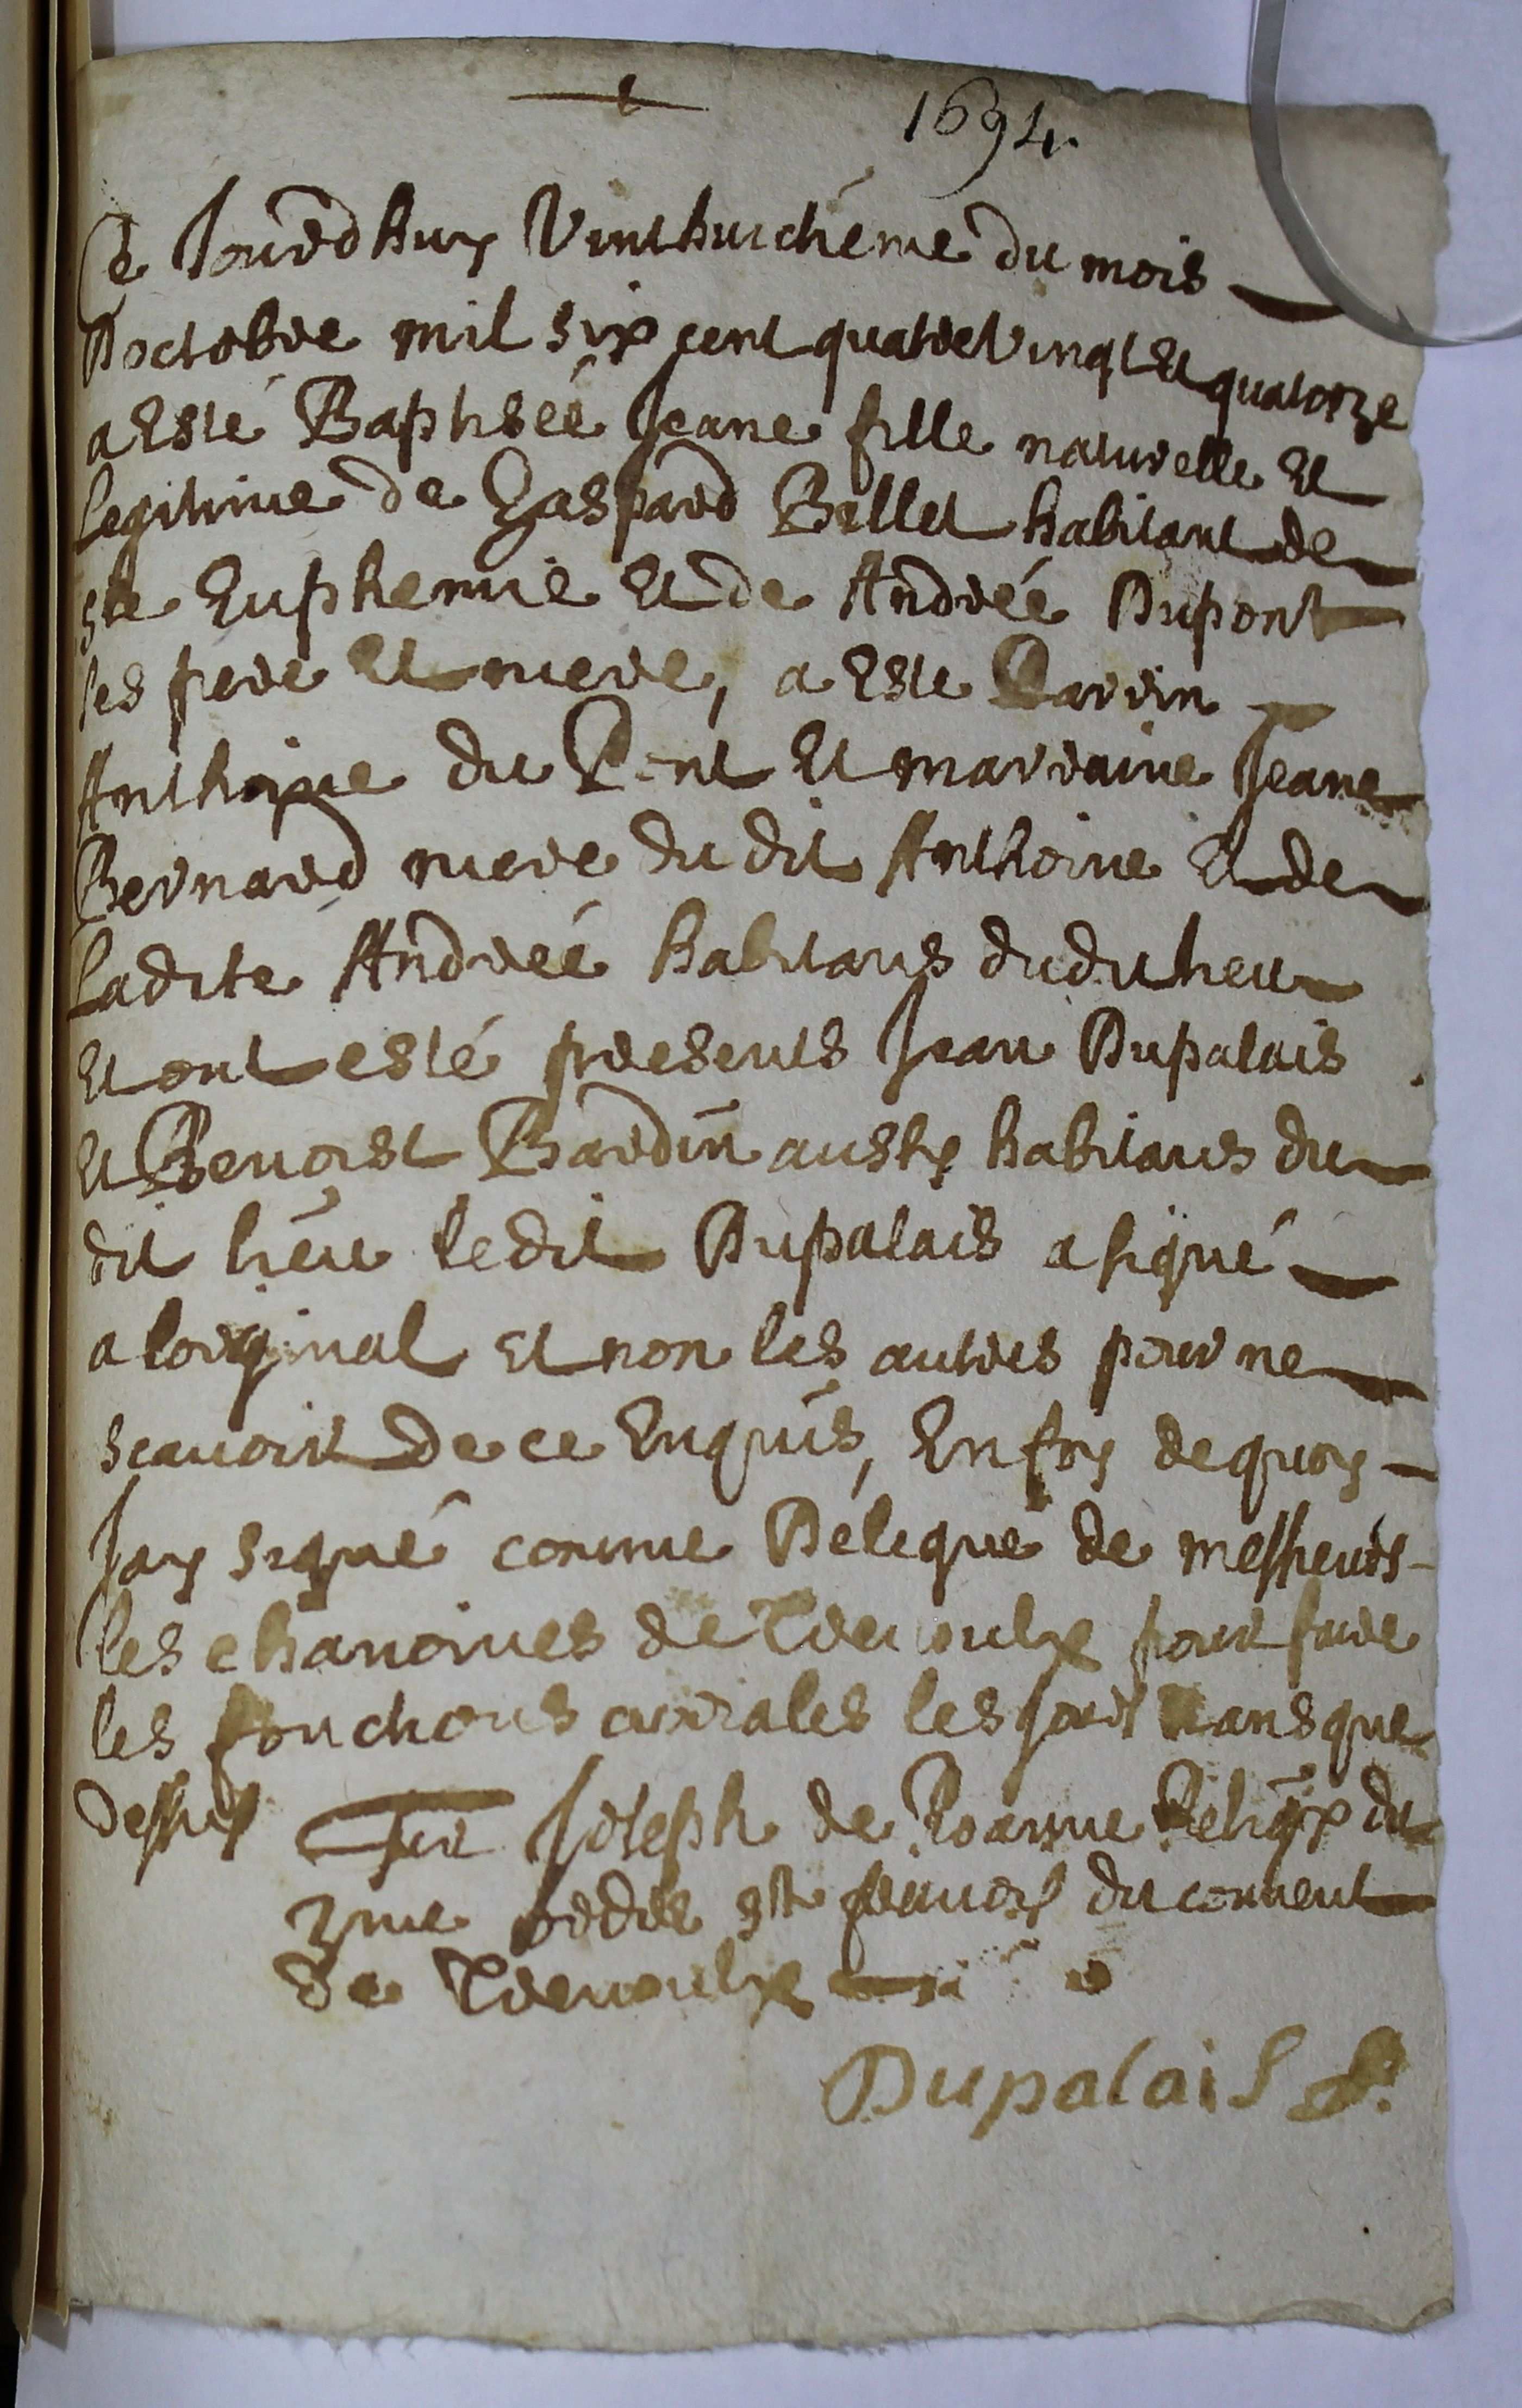 1694
Ce Jourdhuy Vinthuictiéme du mois
Doctobre mil six cent quatrevingt Et quatorze
a Esté Baptisée Jeane fille naturelle Et
legitime de Gaspard Bellet habitant de
Ste Euphemie Et de Andréé Dupont
ses pere Et mere, a Este Parrin
Anthoine du Pont Et marraine Jeane
Bernard mere du dit Anthoine Et de
ladite Andréé habitans dudit lieu
Et ont esté presents Jean Dupalais
Et Benoist Bardin aussy habitans du
dit lieu ledit Dupalais a signé
a loriginal Et non les autres pour ne
scauoir de ce Enquis, En foy dequoy
Jay signé comme Délegué de messieurs
les chanoines de Treuoulx pour faire
les fonctions curiales les jour ans que
dessus frere Joseph de Roanne Religx du
3me ordre st francois du conuent
de Treuoulx
Dupalais